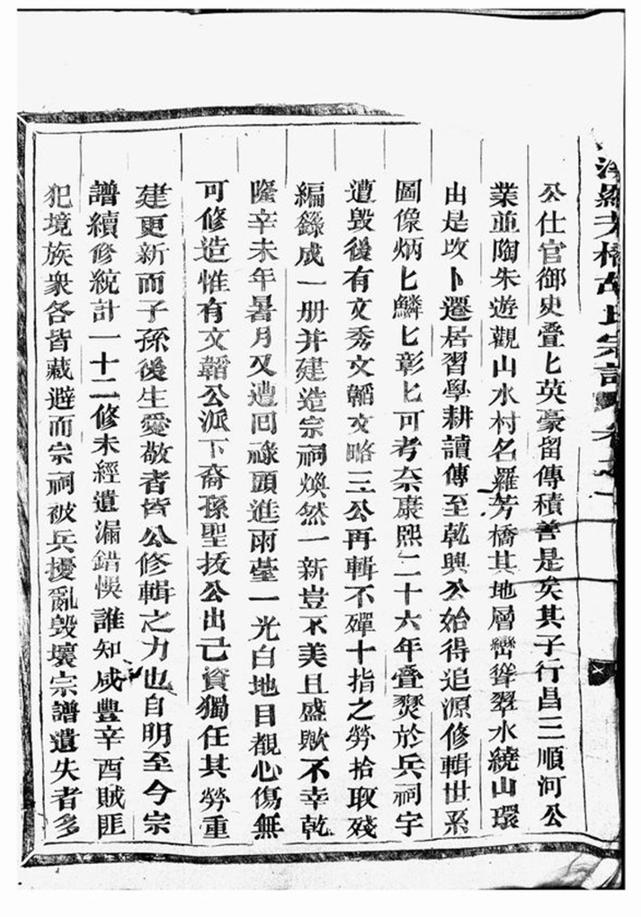 羅芳橋胡氏宗譜 卷之一
公仕官御史疊匕英豪留傳積善是矣其子行昌三順河公
業並陶朱遊觀山水村名羅芳橋其地層巒聳翠水繞山環
由是攺卜遷居習學耕讀傳至乾興公始得追源修輯世系
圖像炳匕鱗匕彰匕可考奈康熙二十六年疊燹於兵祠宇
遭毀後有文秀文韜文略三公再輯不殫十指之勞拾取殘
編錄成一册并建造宗祠煥然一新豈不美且盛歟不幸乾
隆辛未年暑月又遭囘祿頭進兩臺一光白地目覩心傷無
可修造惟有文韜公派下裔孫聖拔公出己資獨任其勞重
建更新而子孫後生愛敬者皆公修輯之力也自明至今宗
譜續修統計一十二修未經遺漏錯悞誰知咸豐辛酉賊匪
犯境族衆各皆藏避而宗祠被兵擾亂毀壞宗譜遺失者多